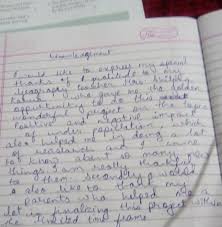 Acknowledgement
I would like to express my special
thanks of gratitude to my
geography teacher
who gave me the golden
opportunity to do this
wonderful project on the topic
Positive and negative impact
of under population, which
also helped me in doing a lot
of research and I came
to know about so many
things I am really thankful
to them. Secondly I would
also like to thank my
parents who helped me a
lot in finalizing this project within
the limited time frame.